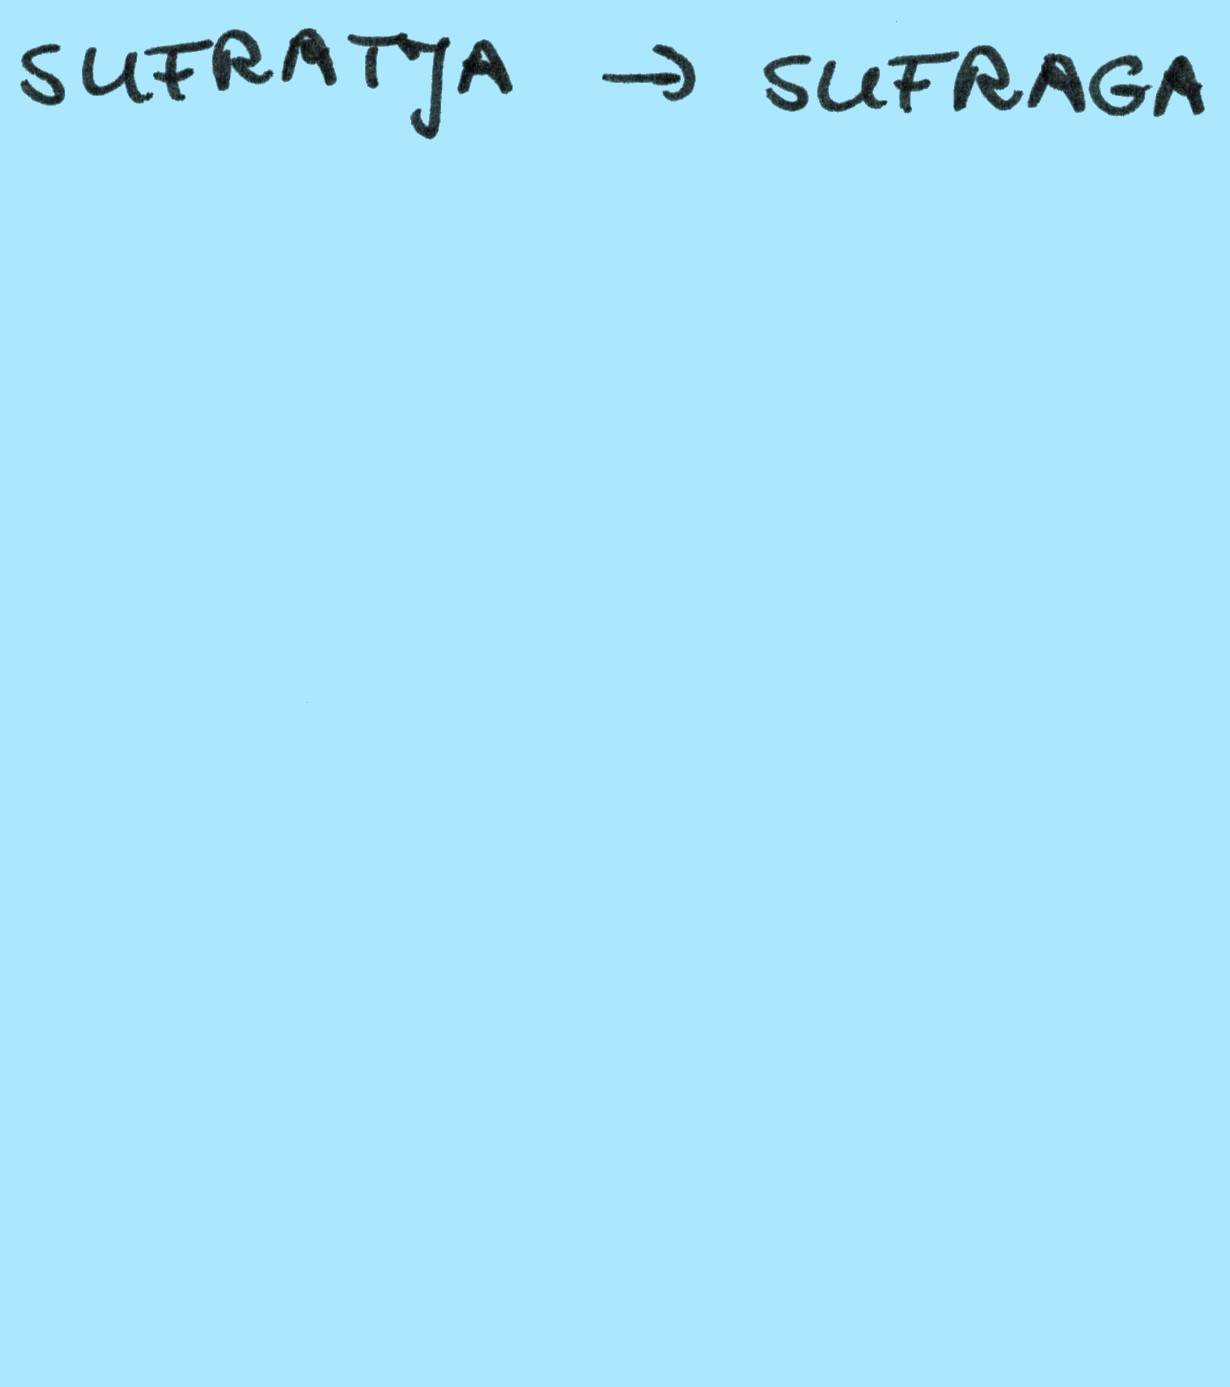 SUFRATJA → SUFRAGA